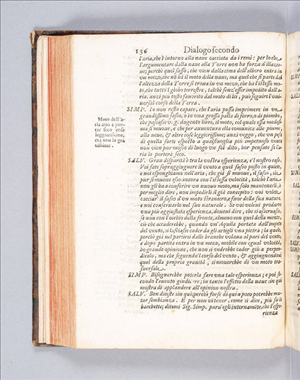 136 Dialogo secondo
l'aria, che è intorno alla naue cacciata da i remi: per lo che,
l'argomentare dalla naue alla Terra non ha forza
perche quel sasso, che vien dalla cima dell'albero entra in
vn mezo, che nõ ha il moto della naue; ma quel che si parte dal
l'altezza della Torre si troua in vn mezo, che ha l'istesso mo-
to, che tutto l'globo terrestre, talchè senz'esser impedito dall'
aria, anzi più tosto fauorito dal moto di lei, può seguire l'vni-
uersal corso della Terra.
SIMP. Io non resto capace, che l'aria possa imprimere in vn
grandissimo sasso, ò in vna grossa palla di ferro, ò di piombo,
che passasse, v. g. dugento libre, il moto, col quale essa medesi-
ma si muoue, e che per auuentura ella comunica alle piume,
alla neue, & altre cose leggierissime; anzi veggo, che vn peso
di quella sorte esposto a qualsiuoglia più impetuoso vento
non vien pur mosso di luogo vn sol dito, hor pensate se l'a-
ria lo porterà seco.
Moto dell'a-
ria atto a por-
tar seco cose
leggierissime,
mà non le gra-
uissime.
SALV. Gran disparità è tra la vostra esperienza, e'l nostro caso.
Voi fate sopraggiugnere il vento a quel sasso posto in quiete,
e noi esponghiamo nell'aria, che già si muoue, il sasso, che
pur si muoue esso ancora con l'istessa velocità, talchè l'aria
non gli ha a conferire vn nuouo moto, ma solo mantenerli, ò
per meglio dire, non impedirli il già concepito: voi volete
cacciar il sasso d'vn moto straniero, e fuor della sua natura,
e noi conseruarlo nel suo naturale. Se voi voleui produrre
vna più aggiustata esperienza, doueui dire, che si osseruasse,
se non con l'occhio della fronte, almeno con quel della mente,
ciò che accaderebbe, quando vn'aquila portata dall'impeto
del vento, si lasciasse cader da gli artigli vna pietra; la quale,
perchè già nel partirsi dalle branche volaua al pari del vento,
e dopo partita entra in vn mezo, mobile con egual velocità,
ho grande opinione, che non si vedrebbe cader giù a perpen-
dicolo, ma che seguendo'l corso del vento, & aggiugnendoui
quel della propria grauità, si mouerebbe di vn moto tra-
suersale.
SIMP. Bisognerebbe poterla fare vna tale esperienza; e poi se-
condo l'euento giudicare; in tanto l'effetto della naue sin quì
mostra di applaudere all'opinion nostra.
SALV. Ben diceste sin quì; perchè forse di quì a poco potrebbe mu-
tar sembianza. E per non tenerui, come si dice, più sù le
bacchette; ditemi Sig. Simp. parui egli internamente, che l'espe-
rienza